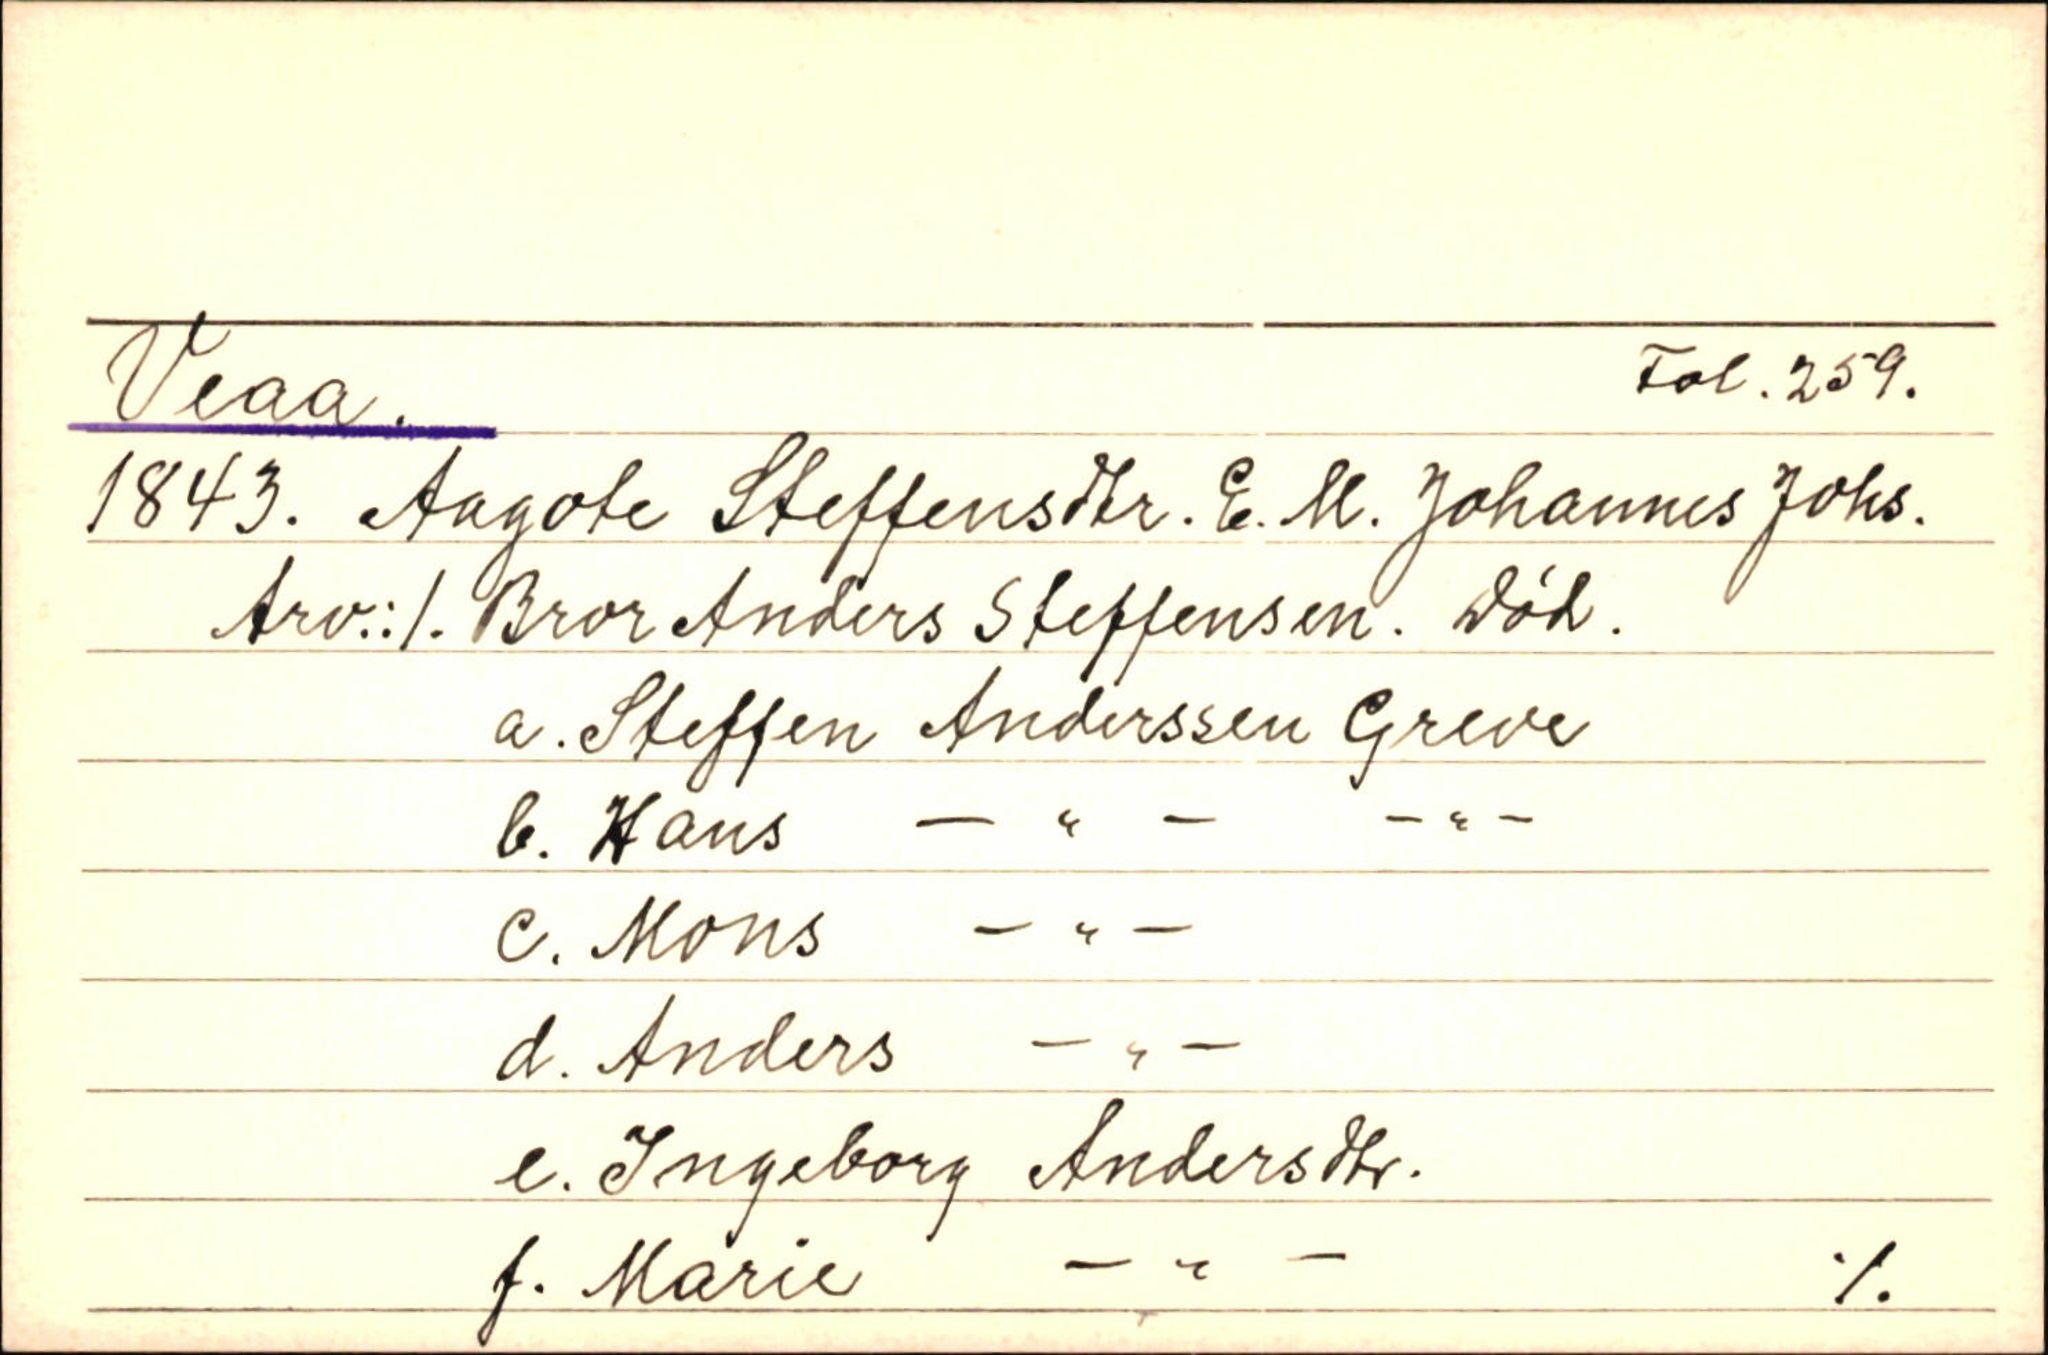 Veaa. Fol. 259.
1843. Aagote Steffensdtr. E. M. Johannes Johs.
Arv.: 1. Bror Anders Steffensen. død.
a. Steffen Anderssen Greve
b. Hans — " — — " —
c. Mons — " —
d. Anders — " —
e. Ingeborg Andersdtr.
f. Marie — " — ·/.